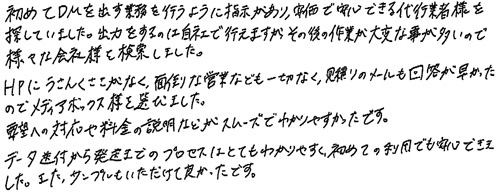 初めてDMを出す業務を行うように指示があり、安価で安心できる代行業者様を
探していました。出力をするのは自社で行えますがその後の作業が大変な事が多いので
様々な会社様を検索しました。
HPにうさんくささがなく、面倒な営業なども一切なく、見積りのメールも回答が早かった
のでメディアボックス様を選びました。
要望への対応や料金の説明などがスムーズでわかりやすかったです。
データ送付から発送までのプロセスはとてもわかりやすく、初めての利用でも安心できま
した。また、サンプルもいただけて良かったです。